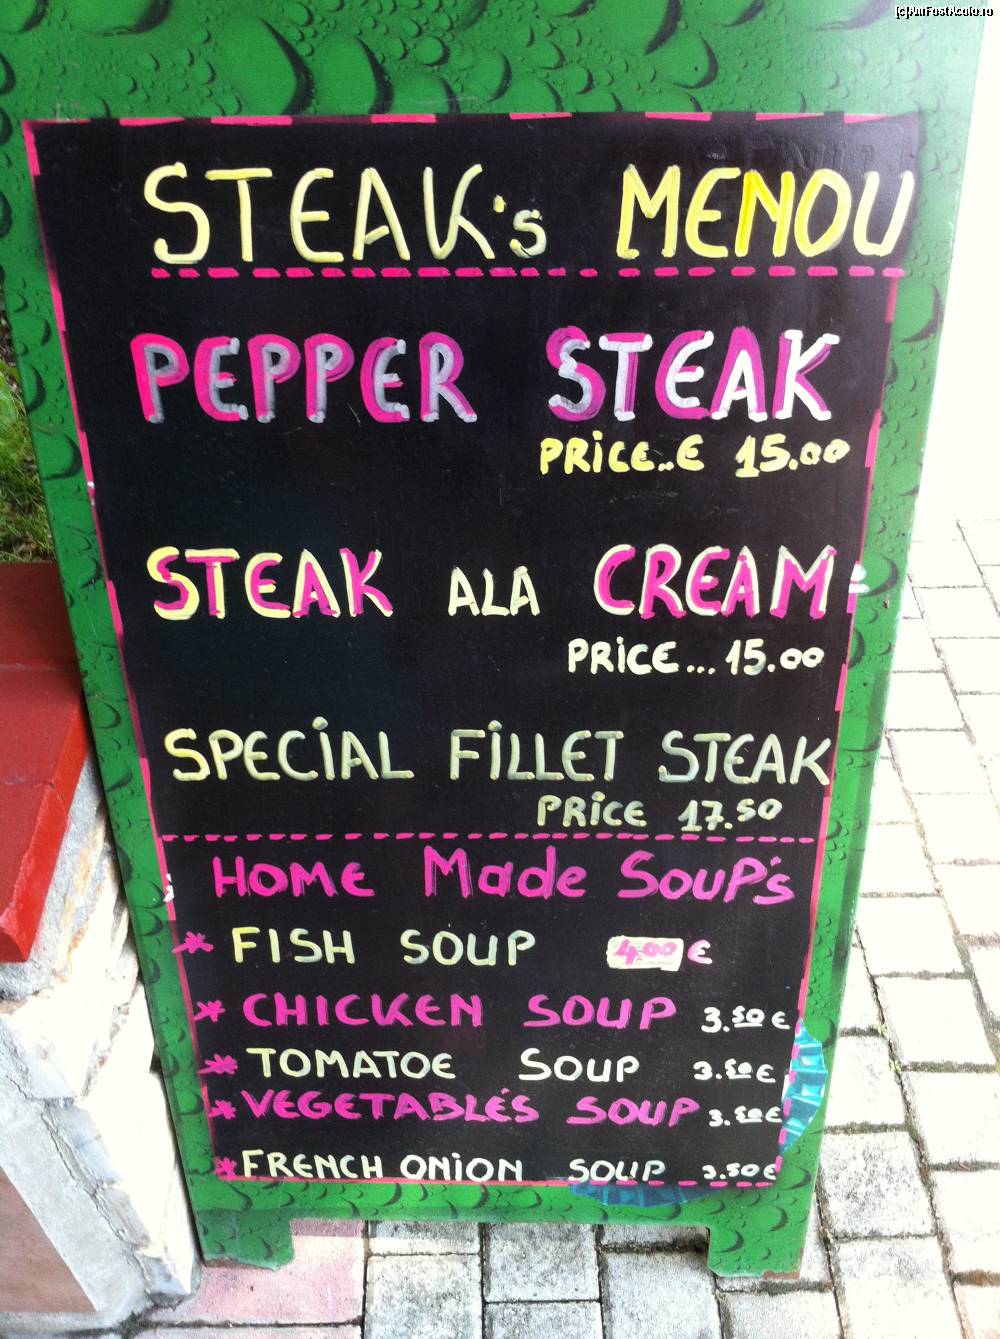 [c]AmFostAcolo.ro
STEAK's MENOU
PEPPER STEAK
PRICE..€ 15.00
STEAK ALA CREAM
PRICE... 15.00
SPECIAL FILLET STEAK
PRICE 17.50
HOME Made SOUP's
* FISH SOUP 4.00 €
* CHICKEN SOUP 3.50 €
* TOMATOE SOUP 3.50 €
* VEGETABLE'S SOUP 3.50 €
* FRENCH ONION SOUP 3.50 €